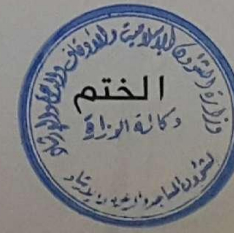 وزارة الشؤون الإسلامية والأوقاف والدعوة والإرشاد
الختم
وكالة الوزارة
لشؤون المساجد والدعوة والإرشاد